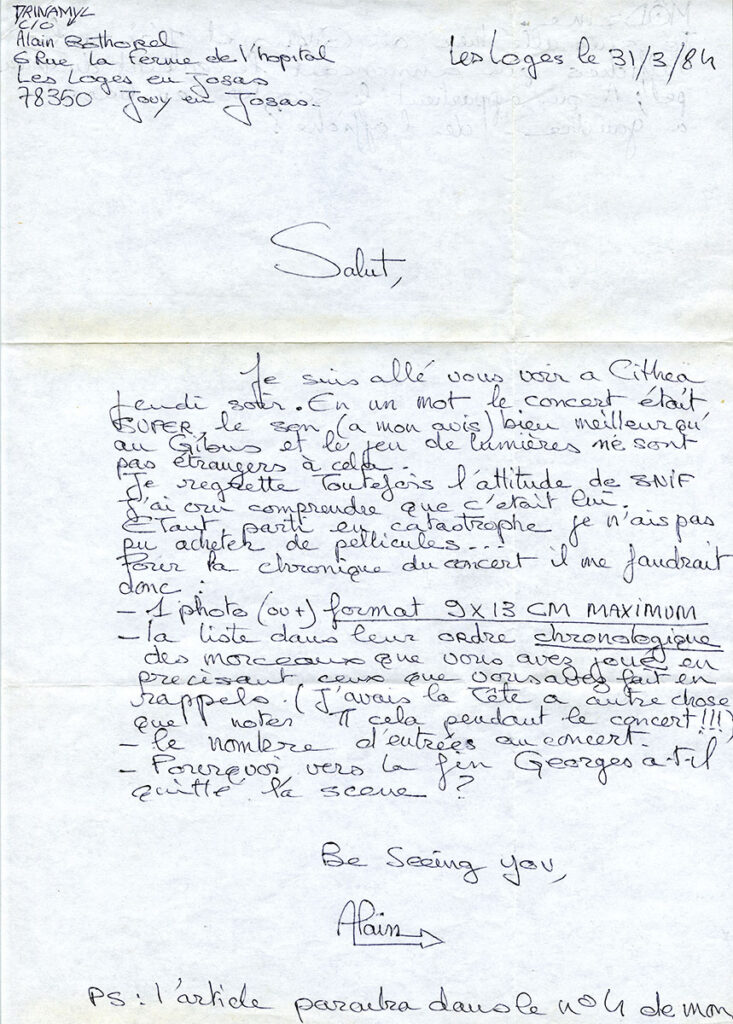 DRINAMYL
C/O
Alain Bothorel
6 Rue la Ferme de l'hopital
Les Loges en Josas
78350 Jouy en Josas.
Les Loges le 31/3/84
Salut,
Je suis allé vous voir a Cithéa
jeudi soir. En un mot le concert était
SUPER, le son (a mon avis) bien meilleur qu'
au Gibus et le jeu de lumières ne sont
pas étrangers à cela.
Je regrette Toutefois l'attitude de SNIF
J'ai cru comprendre que c'était lui.
ETant parti en catastrophe je n'ais pas
pu acheter de pellicules...
Pour la chronique du concert il me faudrait
donc :
- 1 photo (ou +) format 9x13 CM MAXIMUM
- la liste dans leur ordre chronologique
des morceaux que vous avez joué en
précisant ceux que vous avez fait en
rappels. (J'avais la Tête a autre chose
que noter cela pendant le concert!!!)
- le nombre d'entrées au concert.
- Pourquoi vers la fin Georges a-t-il
quitté la scene ?
Be Seeing you,
Alain
PS : l'article paraitra dans le n°4 de mon